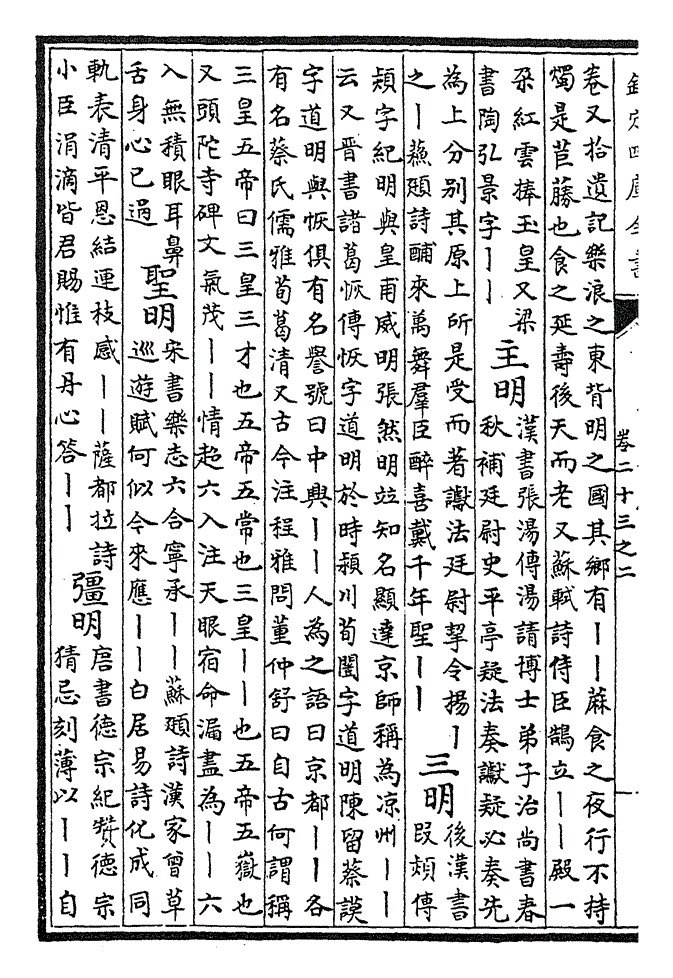 欽定四庫全書
卷二十三之二
卷又拾遺記樂浪之東背明之國其鄉有丨丨蔴食之夜行不持
燭是苣藤也食之延壽後天而老又蘇軾詩侍臣鵠立丨丨殿一
朶紅雲捧玉皇又梁
書陶弘景字丨丨
主明
漢書張湯傳湯請博士弟子治尚書春
秋補廷尉史平亭疑法奏讞疑必奏先
為上分別其原上所是受而著讞法廷尉挈令揚丨
之丨蘓頲詩酺來萬舞羣臣醉喜戴千年聖丨丨
三明
後漢書
段熲傳
熲字紀明與皇甫威明張然明竝知名顯達京師稱為凉州丨丨
云又晉書諸葛恢傳恢字道明於時潁川荀闓字道明陳留蔡謨
字道明與恢俱有名譽號曰中興丨丨人為之語曰京都丨丨各
有名蔡氏儒雅荀葛清又古今注程雅問董仲舒曰自古何謂稱
三皇五帝曰三皇三才也五帝五常也三皇丨丨也五帝五嶽也
又頭陀寺碑文氣茂丨丨情超六入注天眼宿命漏盡為丨丨六
入無積眼耳鼻
舌身心已過
聖明
宋書樂志六合寧承丨丨蘇頲詩漢家曾草
巡遊賦何似今來應丨丨白居易詩化成同
軌表清平恩結連枝感丨丨薩都拉詩
小臣涓滴皆君賜惟有丹心答丨丨
彊明
唐書德宗紀贊德宗
猜忌刻薄以丨丨自